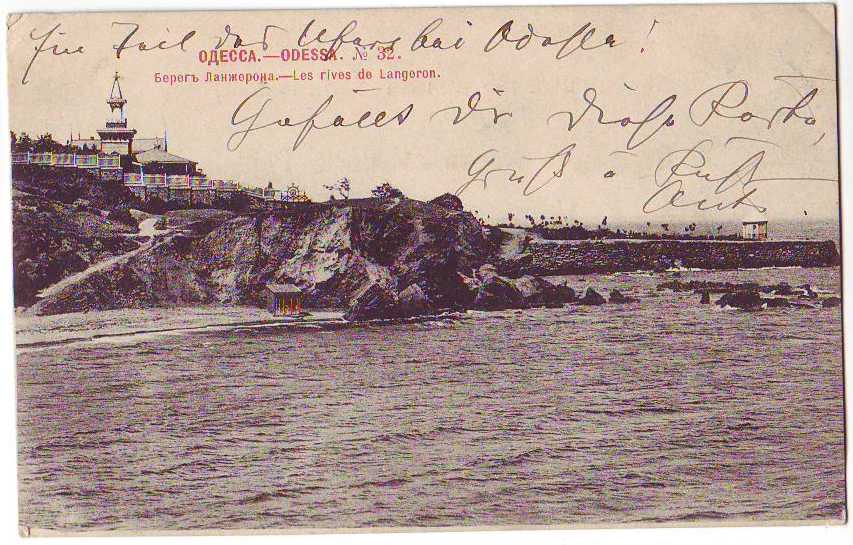 Ein Teil des Ufers bei Odessa!
ОДЕССА.—ODESSA. № 32.
Берегъ Ланжерона.—Les rives de Langeron.
Gefällt Dir diese Karte,
Gruß &